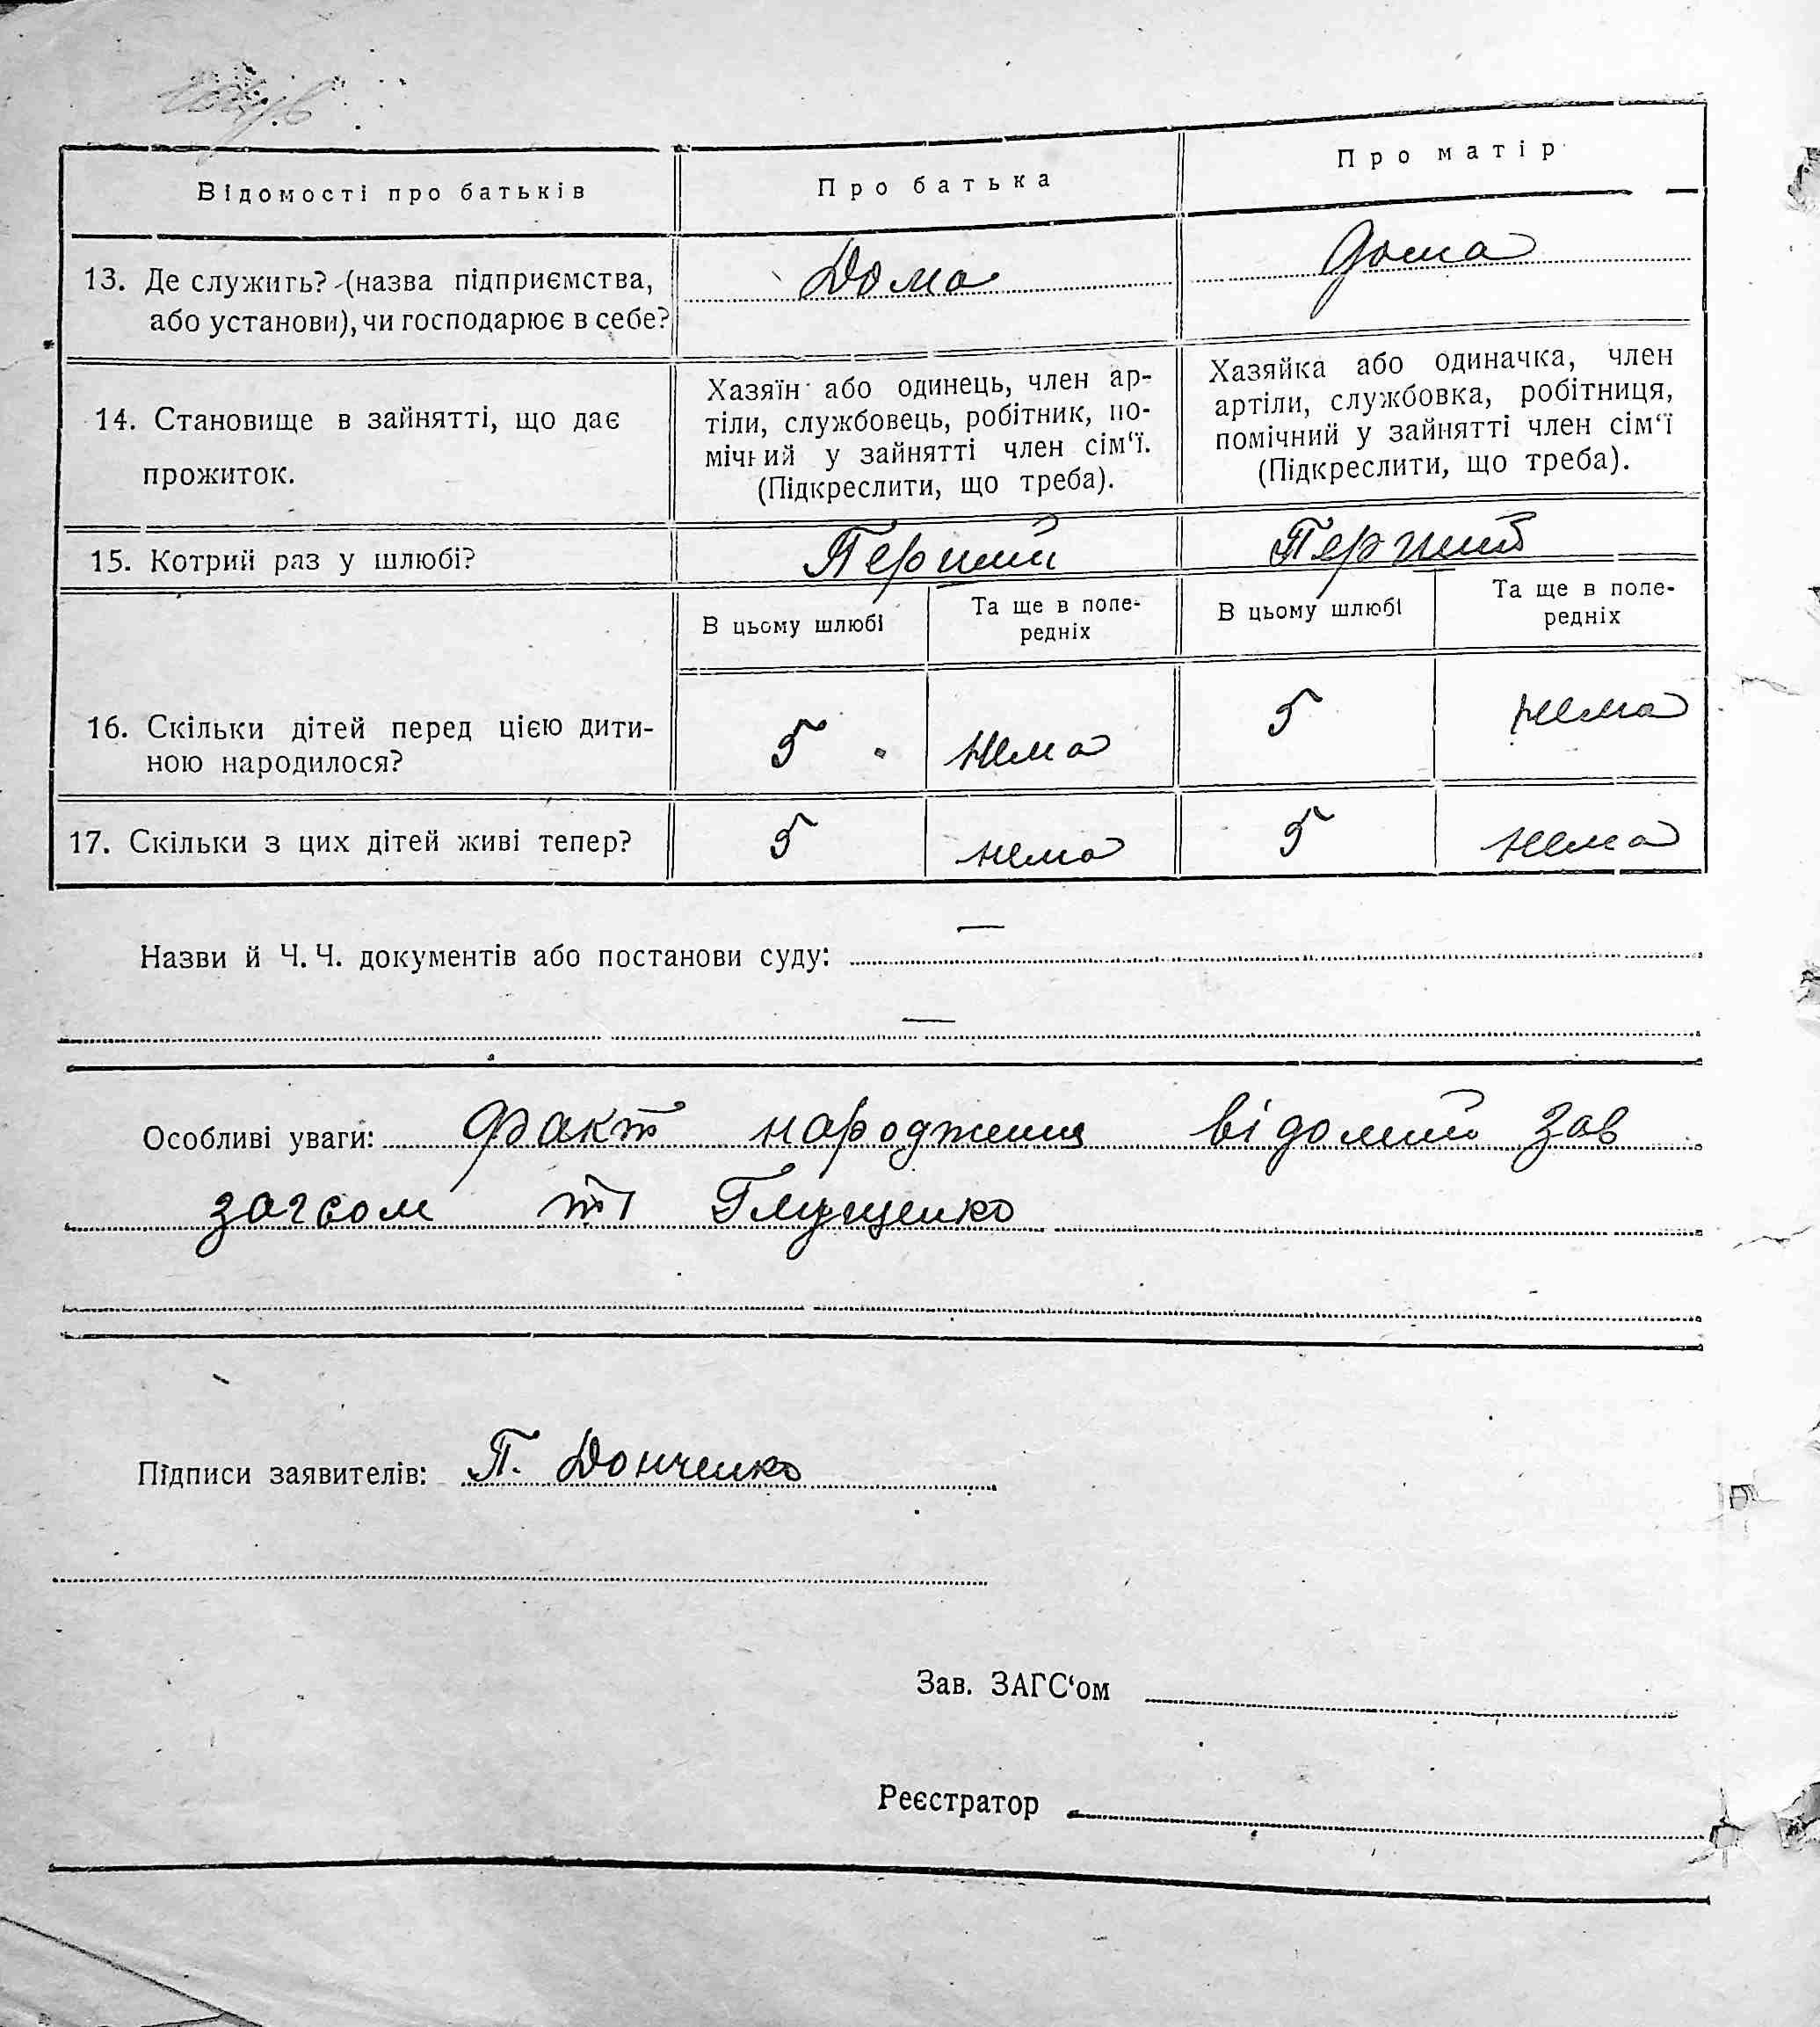 Відомості про батьків
Про батька
Про матір
13. Де служить? (назва підприємства,
або установи), чи господарює в себе?
Дома
дома
14. Становище в зайнятті, що дає
прожиток.
Хазяїн або одинець, член ар-
тіли, службовець, робітник, по-
мічний у зайнятті член сім‘ї.
(Підкреслити, що треба).
Хазяйка або одиначка, член
артіли, службовка, робітниця,
помічний у зайнятті член сім‘ї
(Підкреслити, що треба).
15. Котрий раз у шлюбі?
Перший
Перший
В цьому шлюбі
Та ще в попе-
редніх
В цьому шлюбі
Та ще в попе-
редніх
16. Скільки дітей перед цією дити-
ною народилося?
5
нема
5
нема
17. Скільки з цих дітей живі тепер?
5
нема
5
нема
Назви й Ч. Ч. документів або постанови суду: —
—
Особливі уваги: Факт народження відомий зав
загсом Глущенко
Підписи заявителів: П. Донченко
Зав. ЗАГС‘ом
Реєстратор